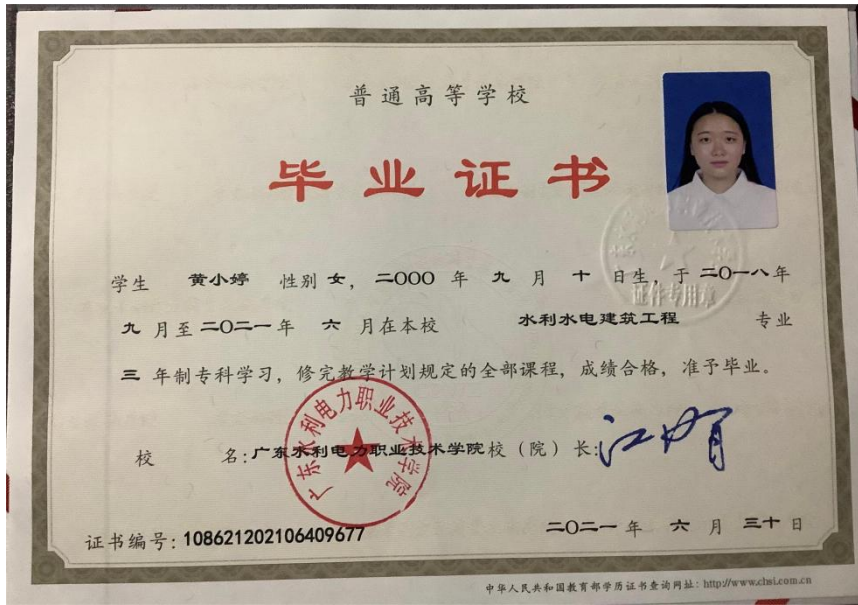 普通高等学校
毕业证书
学生 黄小婷 性别 女，二〇〇〇 年 九 月 十 日生，于 二〇一八 年
九 月至 二〇二一 年 六 月在本校 水利水电建筑工程 专业
三 年制专科学习，修完教学计划规定的全部课程，成绩合格，准予毕业。
校 名：广东水利电力职业技术学院 校（院）长：
广东水利电力职业技术学院
证件专用章
证书编号：108621202106409677
二〇二一 年 六 月 三十 日
中华人民共和国教育部学历证书查询网址：http://www.chsi.com.cn